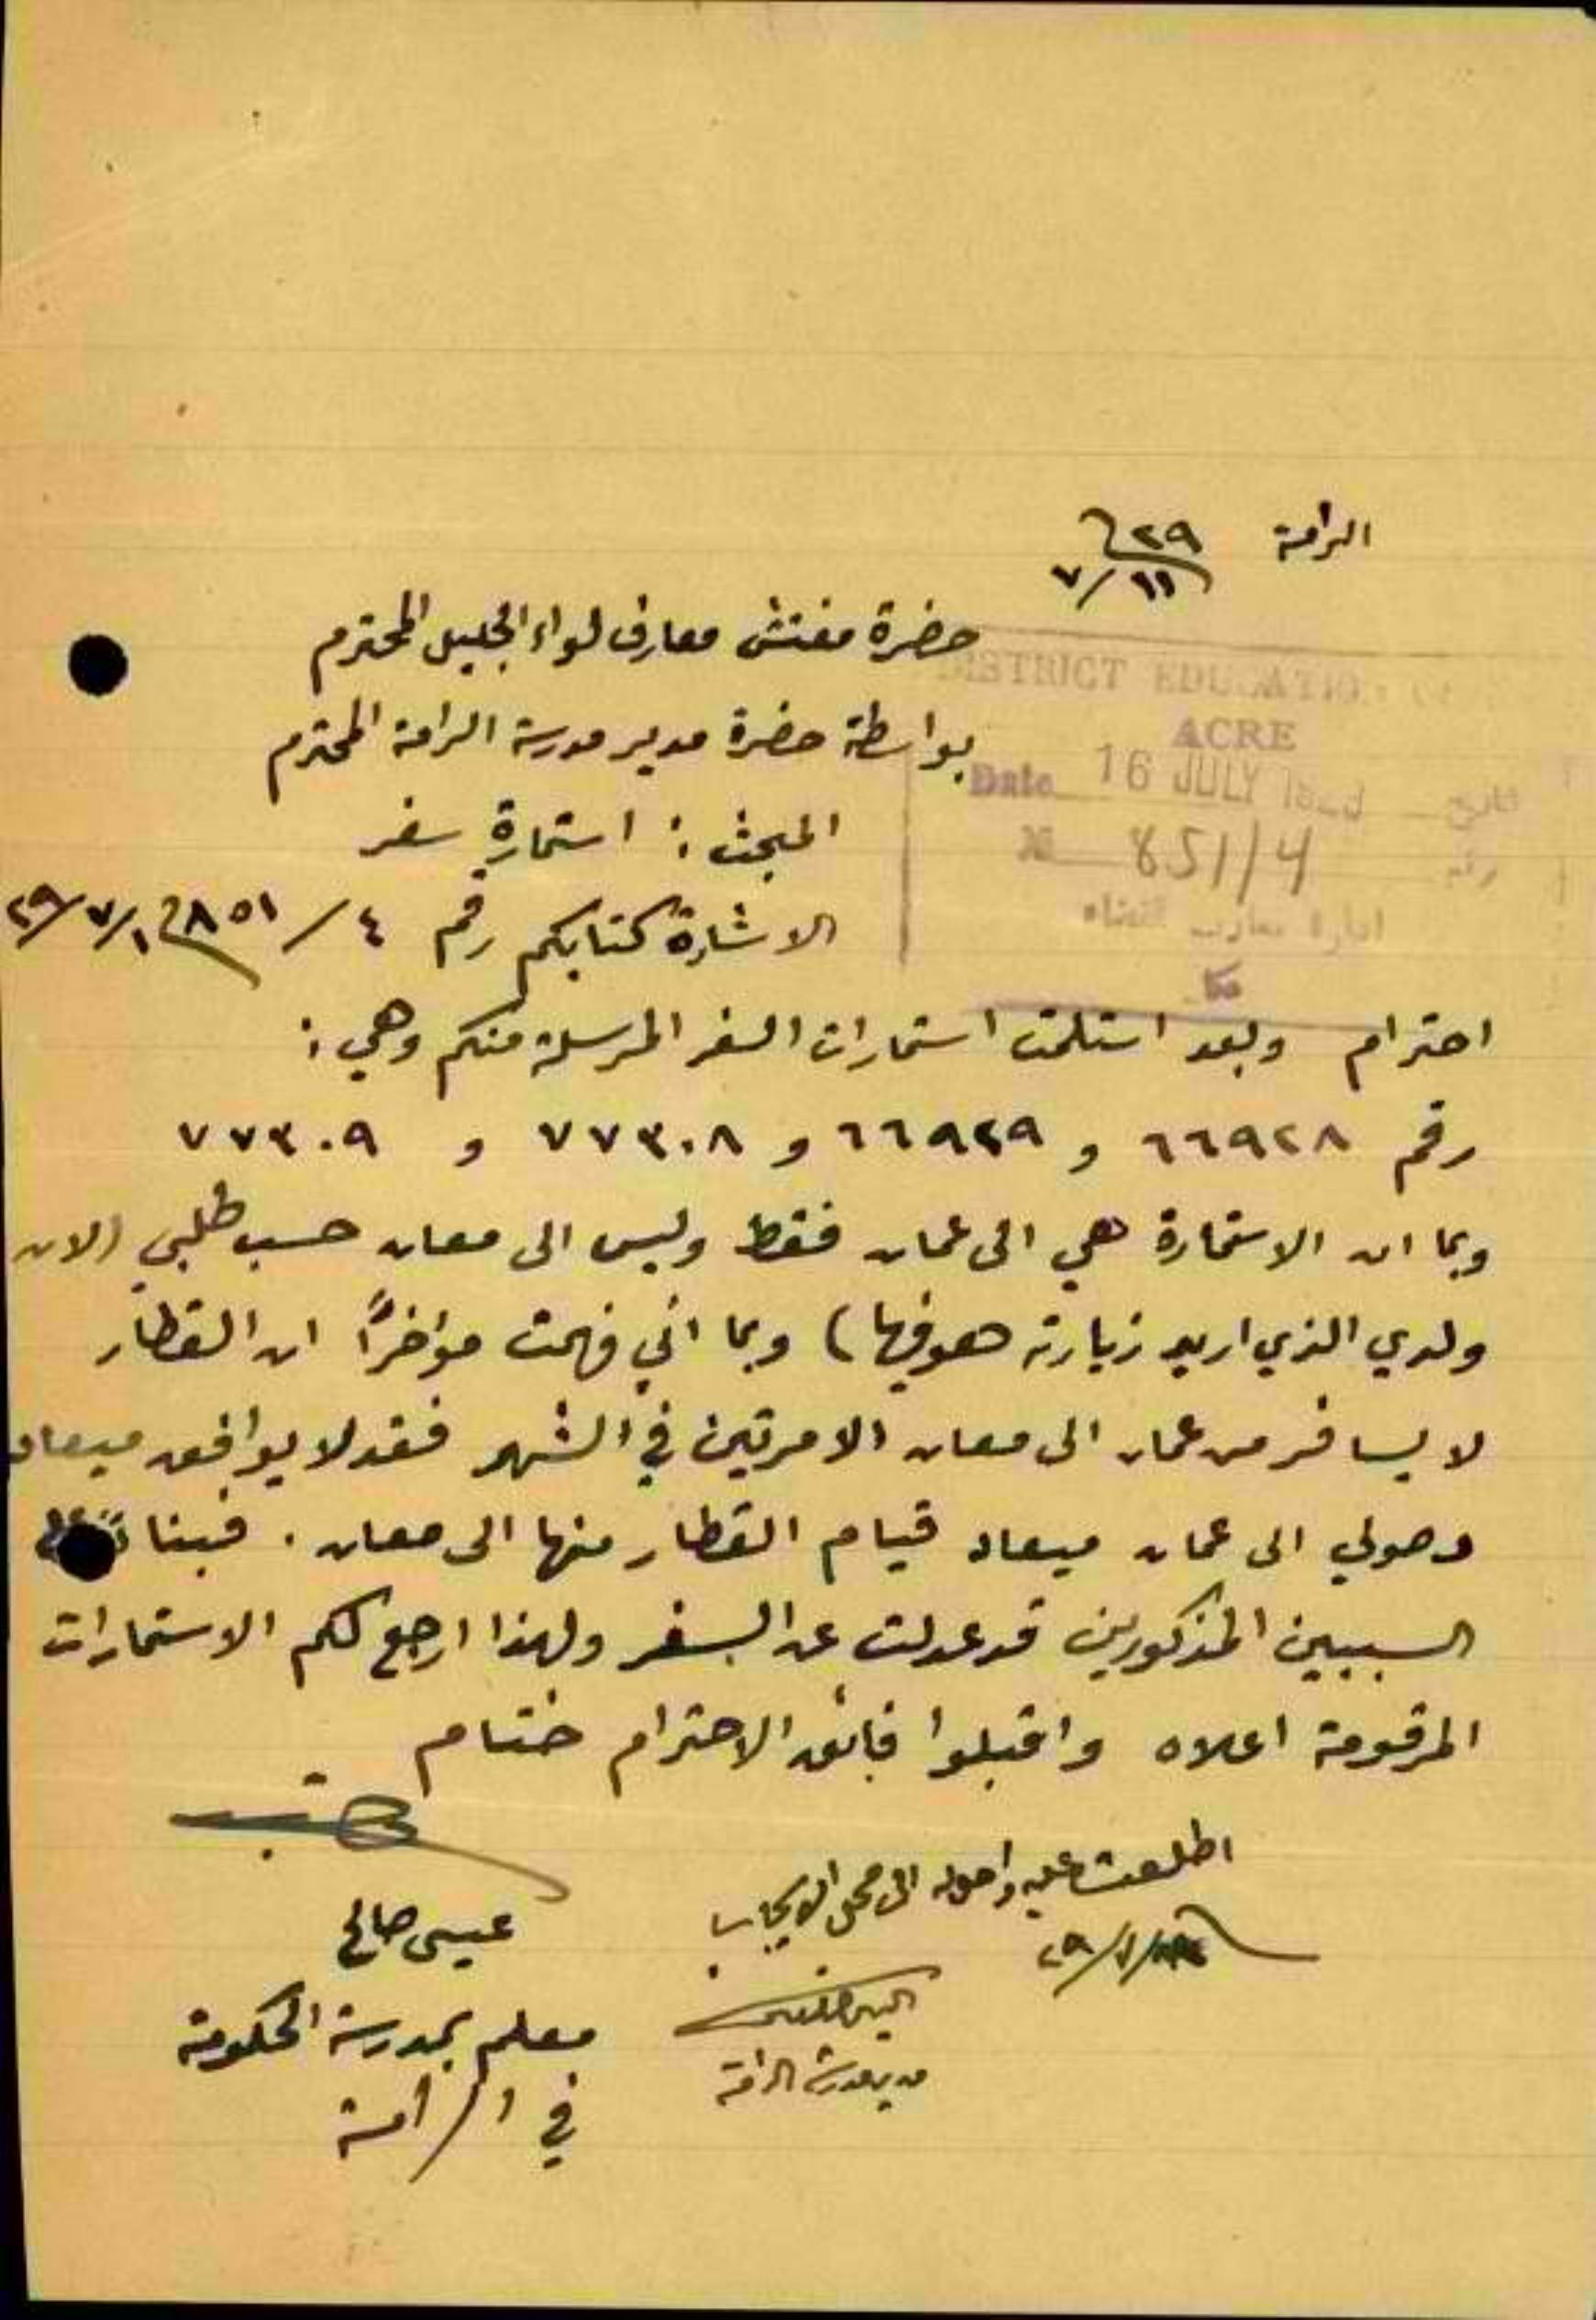 الرامة ٢٩
٧/١١
حضرة مفتش معارف لواء الجليل المحترم
بواسطة حضرة مدير مدرسة الرامة المحترم
DISTRICT EDUCATION
ACRE
Date 16 JULY تاريخ
№ 851/4 رقم
ادارة معارف القضاء
عكا
المبحث : استمارة سفر
الاشارة كتابكم رقم ٤/٨٥١ ٢٩/٧/١
احترام وبعد استلمت استمارات السفر المرسلة منكم وهي :
رقم ٦٦٩٢٨ و ٦٦٩٢٩ و ٧٧٣٠٨ و ٧٧٣٠٩
وبما ان الاستمارة هي الى عمان فقط وليس الى معان حسب طلبي (لان
ولدي الذي اريد زيارته هو فيها) وبما اني فهمت مؤاخراً ان القطار
لا يسافر من عمان الى معان الا مرتين في الشهر فقد لا يوافق ميعاد
وصولي الى عمان ميعاد قيام القطار منها الى معان . فبناءً على
السببين المذكورين قد عدلت عن السفر ولهذا ارجع لكم الاستمارات
المرقومة اعلاه واقبلوا فائق الاحترام ختام
اطلعت عليه واحوله الى محل الايجاب
٢٩/٧/
مدير مدرسة الرامة
عيسى صالح
معلم بمدرسة الحكومة
في الرامة